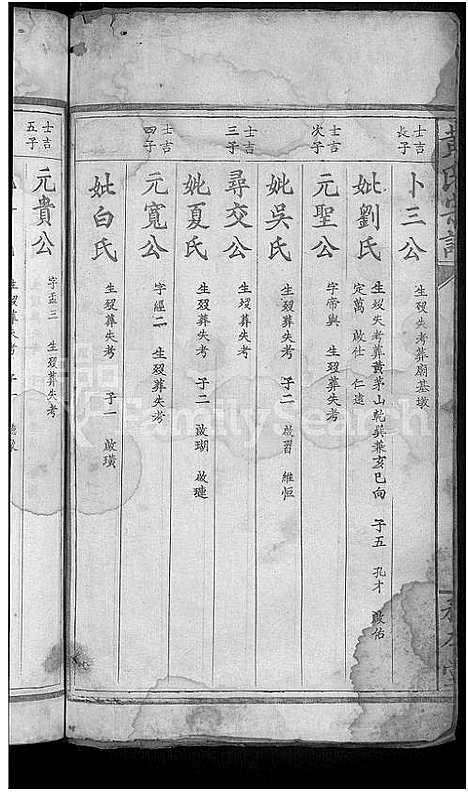 士吉長子
卜三公 生殁失考葬廟基墩
妣劉氏 生殁失考葬黄茅山乾巽兼亥巳向 子五 孔才 啟佑
定萬 啟仕 仁遠
士吉次子
元聖公 字帝與 生殁葬失考
妣吳氏 生殁葬失考 子二 啟習 維恒
士吉三子
尋交公 生殁葬失考
妣夏氏 生殁葬失考 子二 啟瑚 啟璉
士吉四子
元寬公 字經二 生殁葬失考
妣白氏 生殁葬失考 子一 啟璜
士吉五子
元貴公 字盃三 生殁葬失考
生殁葬失考 子一
FamilySearch